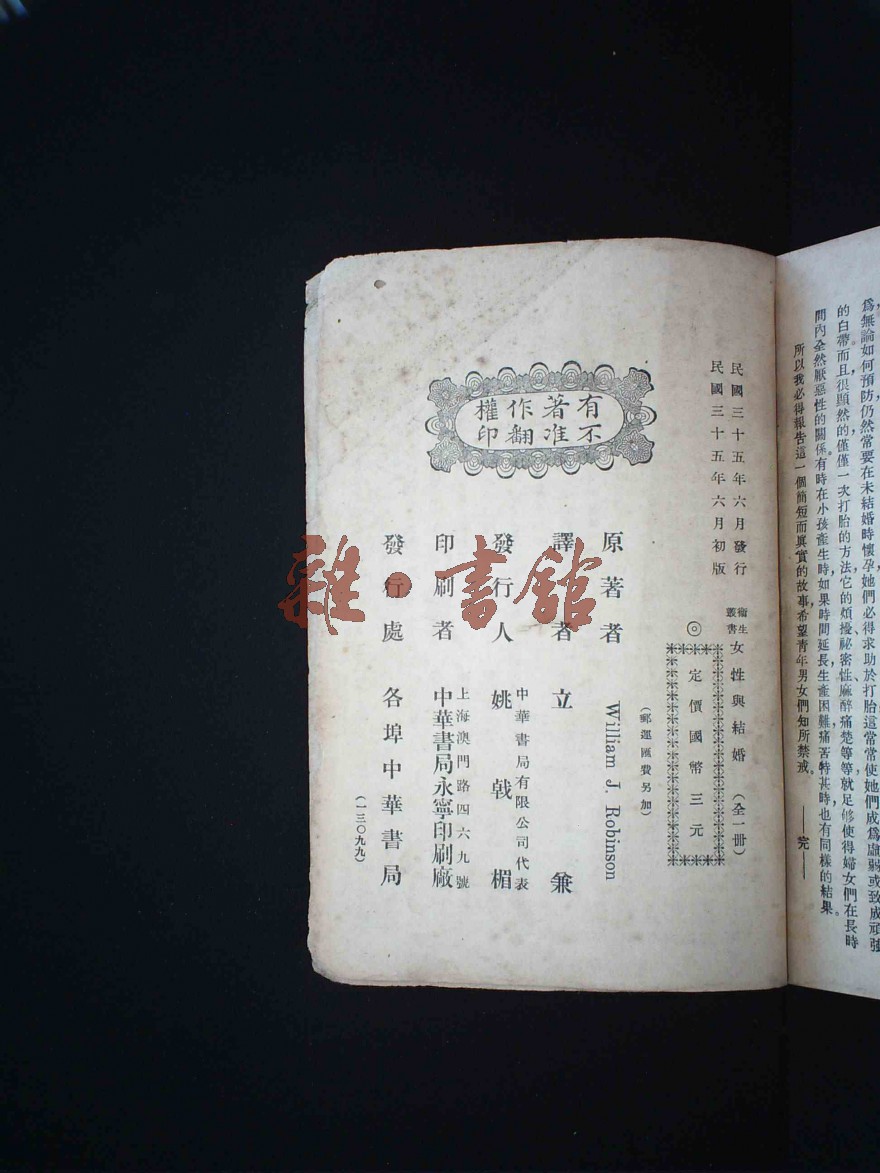 爲無論如何預防仍然常要在未結婚時懷孕,她們必得求助於打胎,這常常使她們成爲虛弱或致成頑強
的白帶。而且很顯然的,僅僅一次打胎的方法,它的煩擾、祕密性、麻醉、痛楚等等就足够使得婦女們在長時
間內全然厭惡性的關係。有時在小孩產生時,如果時間延長,生產困難,痛苦特甚時,也有同樣的結果。
所以我必得報告這一個簡短而眞實的故事,希望青年男女們知所禁戒。
——完——
民國三十五年六月發行
民國三十五年六月初版
衞生叢書 女性與結婚(全一册)
◎定價國幣三元
(郵運匯費另加)
原著者 William J. Robinson
譯者 立兼
發行人 姚戟楣
中華書局有限公司代表
印刷者 中華書局永寧印刷廠
上海澳門路四六九號
發行處 各埠中華書局
(一三〇九九)
有著作權
不准翻印
雜·書館